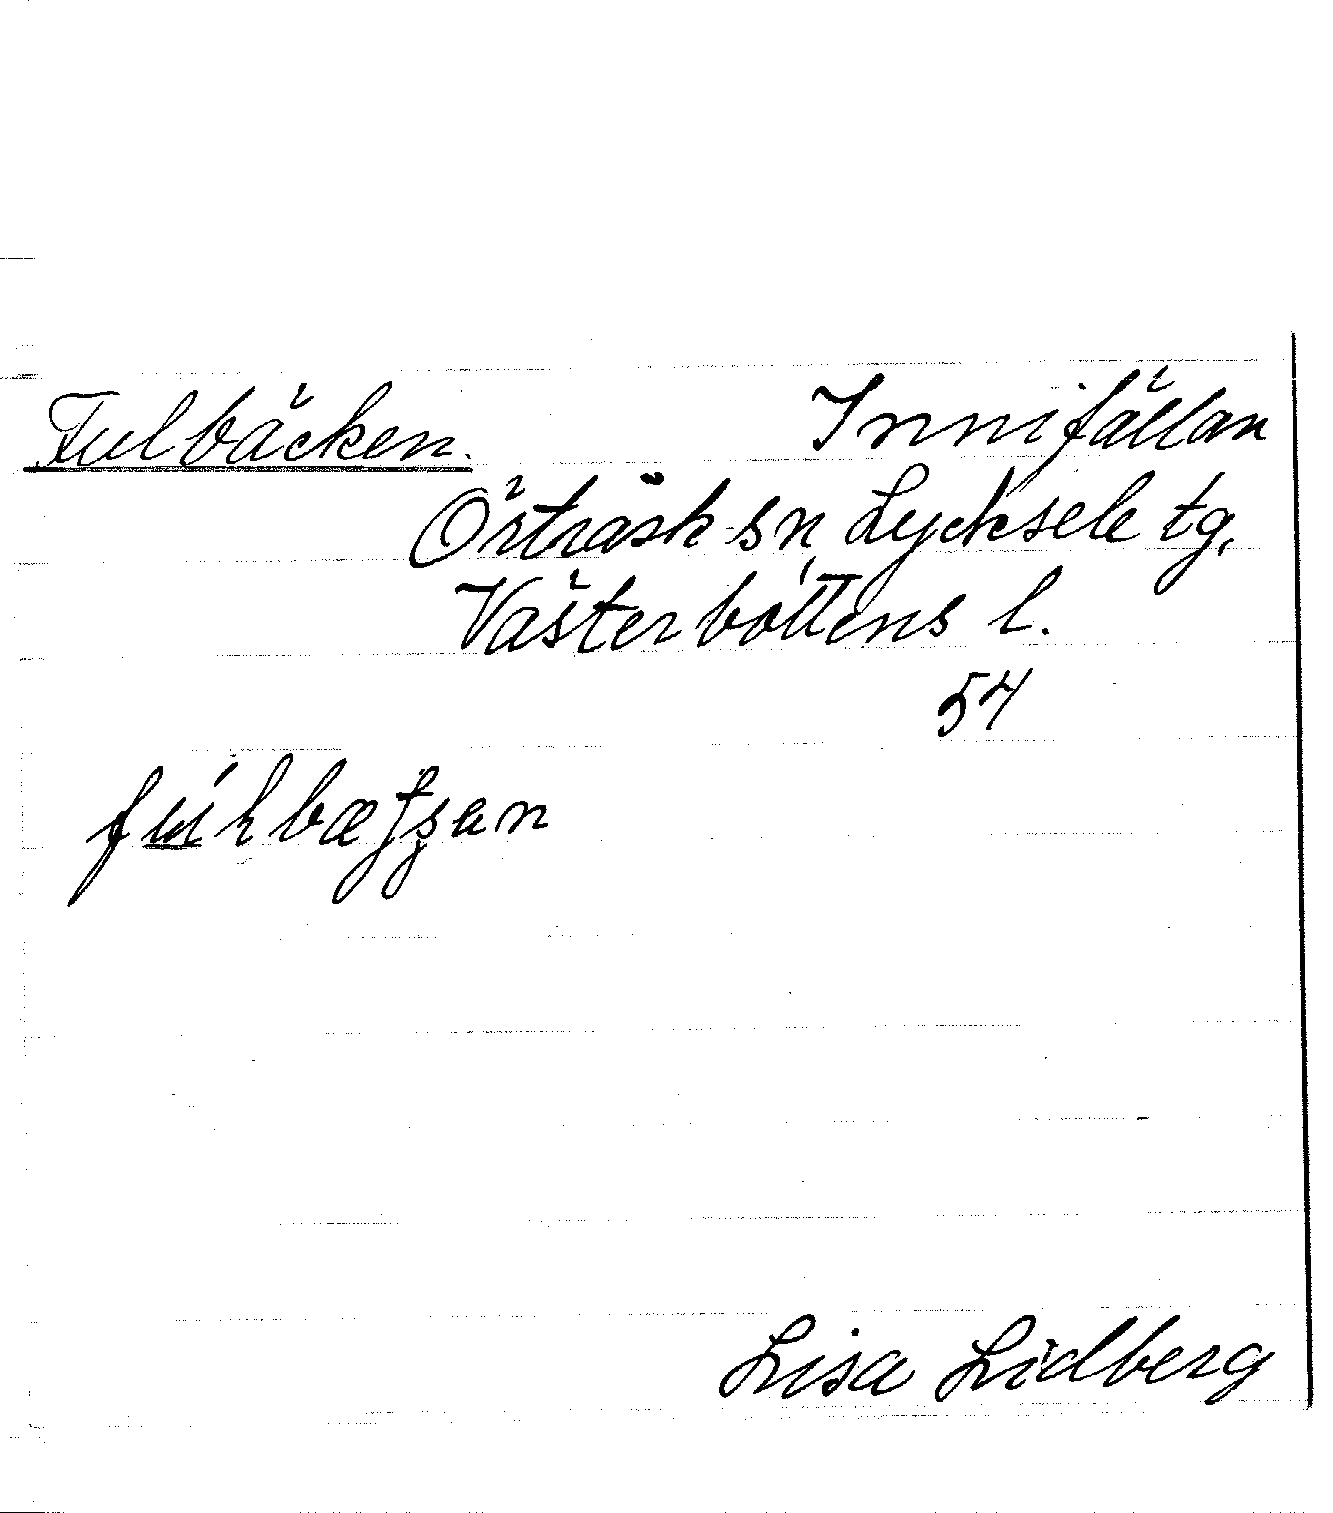 Fulbäcken.
Innifällan
Örträsk sn Lycksele tg.
Västerbottens l.
54
Lisa Lidberg